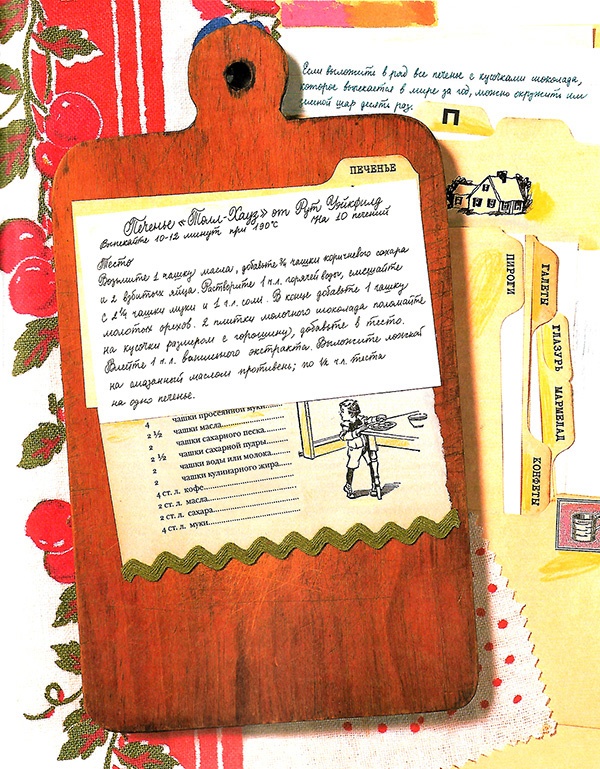 Если выложить в ряд все печенье с кусочками шоколада,
которое выпекается в мире за год, можно окружить им
земной шар десять раз.
П
ПЕЧЕНЬЕ
Печенье «Толл-Хауз» от Рут Уэйкфилд
Выпекайте 10-12 минут при 190°C На 10 печений
Тесто
Возьмите 1 чашку масла, добавьте ¾ чашки коричневого сахара
и 2 взбитых яйца. Растворите 1 ч.л. горячей воды, смешайте
с 2¼ чашки муки и 1 ч.л. соли. В конце добавьте 1 чашку
молотых орехов. 2 плитки молочного шоколада поломайте
на кусочки размером с горошину, добавьте в тесто.
Влейте 1 ч.л. ванильного экстракта. Выложите ложкой
на смазанный маслом противень; по ½ ч.л. теста
на одно печенье.
4 чашки просеянной муки
2 ½ чашки масла
2 чашки сахарного песка
2 ½ чашки сахарной пудры
2 чашки воды или молока
2 чашки кулинарного жира
4 ст. л. кофе
2 ст. л. масла
2 ст. л. сахара
4 ст. л. муки
ПИРОГИ
ГАЛЕТЫ
ГЛАЗУРЬ
МАРМЕЛАД
КОНФЕТЫ